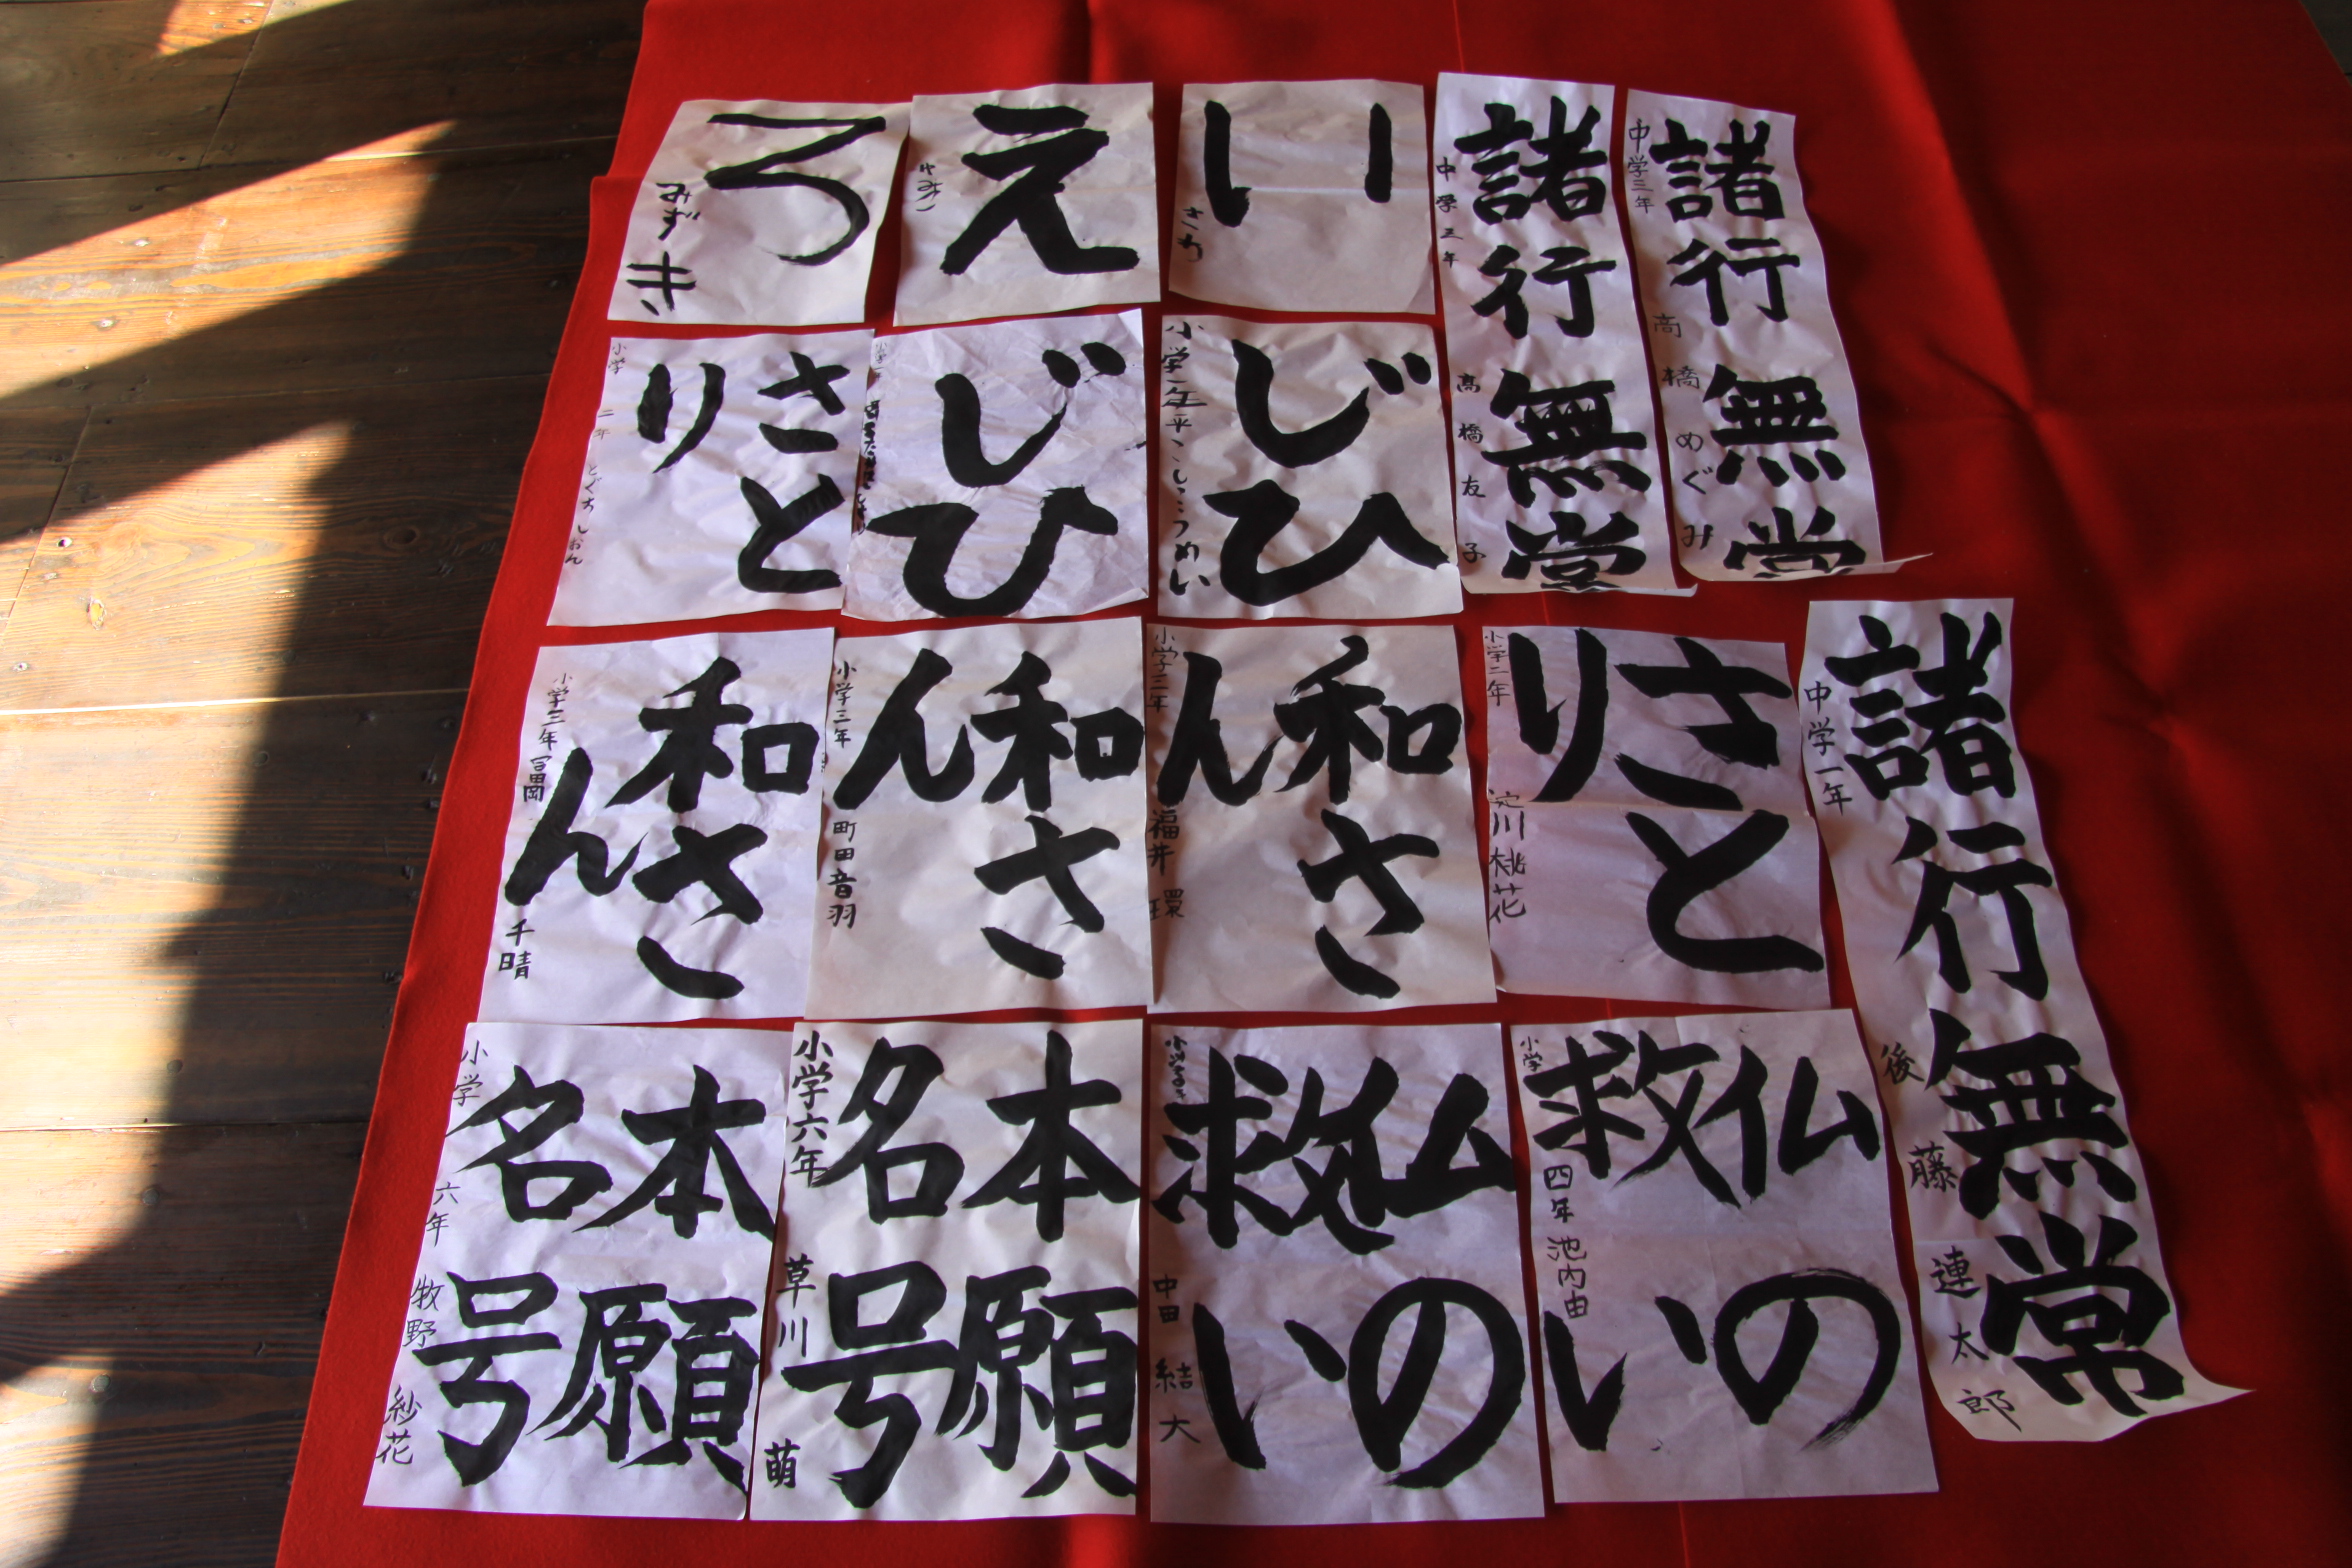 諸行無常
中学三年 高橋めぐみ
諸行無常
中学三年 高橋友子
い
さち
え
ろ
みずき
じひ
小学一年
じひ
さと
り
小学二年 とぐちしおん
諸行無常
中学一年 後藤連太郎
さと
り
小学二年 淀川桃花
和さ
ん
小学三年 福井環
和さ
ん
小学三年 町田音羽
和さ
ん
小学三年 冨岡千晴
仏の
救い
小学四年 池内由
仏の
救い
中田結大
本願
名号
小学六年 草川萌
本願
名号
小学六年 牧野紗花